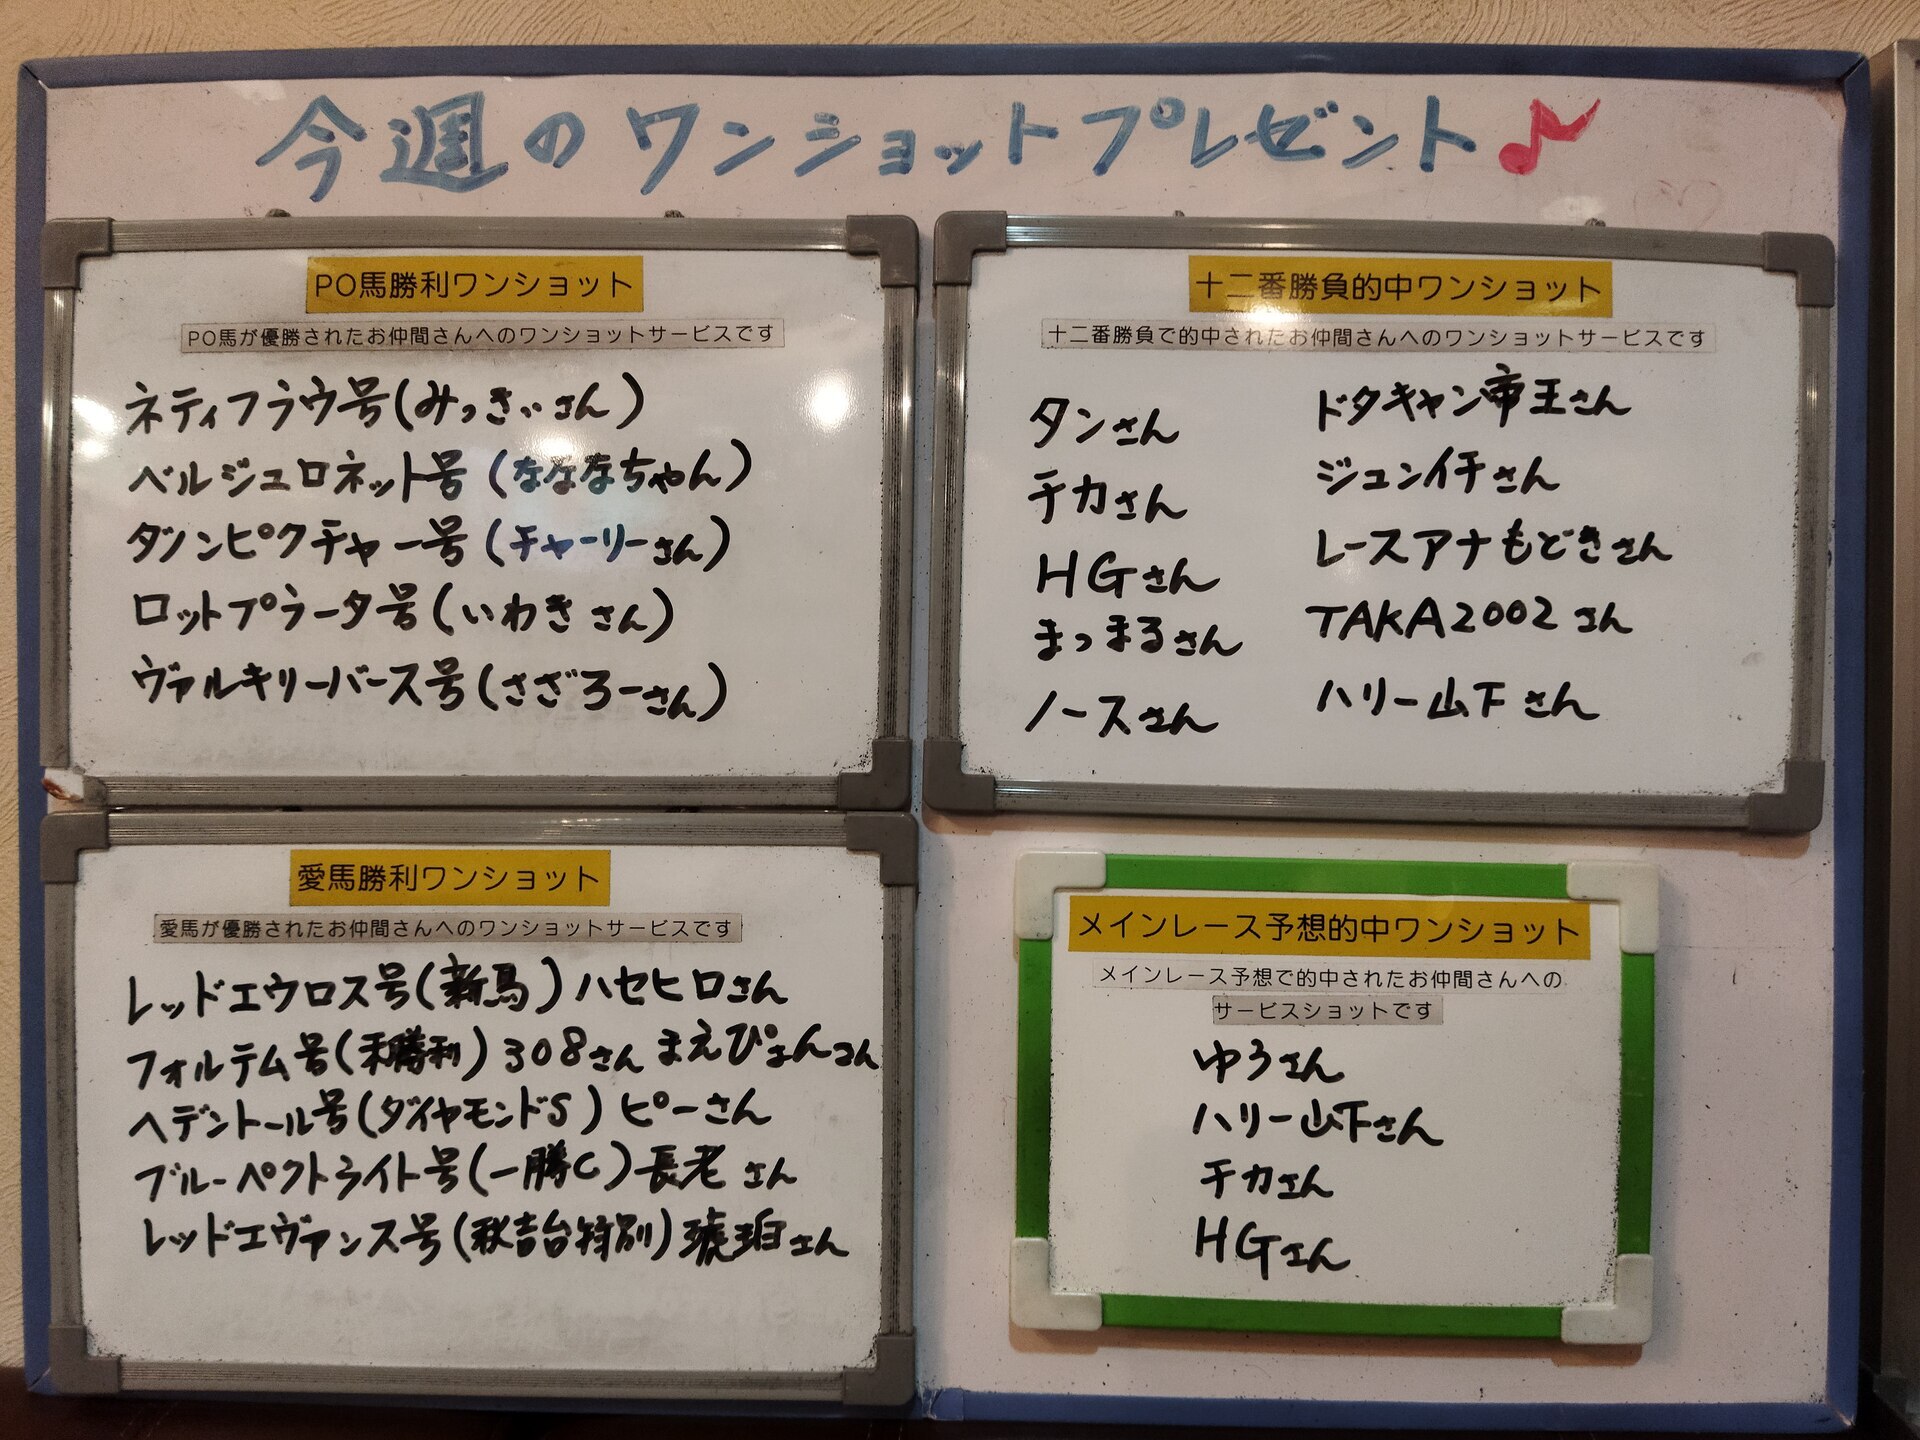 今週のワンショットプレゼント♪
PO馬勝利ワンショット
PO馬が優勝されたお仲間さんへのワンショットサービスです
ネティフラウ号(みっきぃさん)
ベルジュロネット号(なななちゃん)
ダノンピクチャー号(チャーリーさん)
ロットプラータ号(いわきさん)
ヴァルキリーバース号(さざろーさん)
十二番勝負的中ワンショット
十二番勝負で的中されたお仲間さんへのワンショットサービスです
タンさん
チカさん
HGさん
まっまるさん
ノースさん
ドタキャン帝王さん
ジュンイチさん
レースアナもどきさん
TAKA2002さん
ハリー山下さん
愛馬勝利ワンショット
愛馬が優勝されたお仲間さんへのワンショットサービスです
レッドエウロス号(新馬)ハセヒロさん
フォルテム号(未勝利)308さん まえぴょんさん
ヘデントール号(ダイヤモンドS)ピーさん
ブルーペクトライト号(一勝C)長老さん
レッドエヴァンス号(秋吉台特別)琥珀さん
メインレース予想的中ワンショット
メインレース予想で的中されたお仲間さんへの
サービスショットです
ゆうさん
ハリー山下さん
チカさん
HGさん